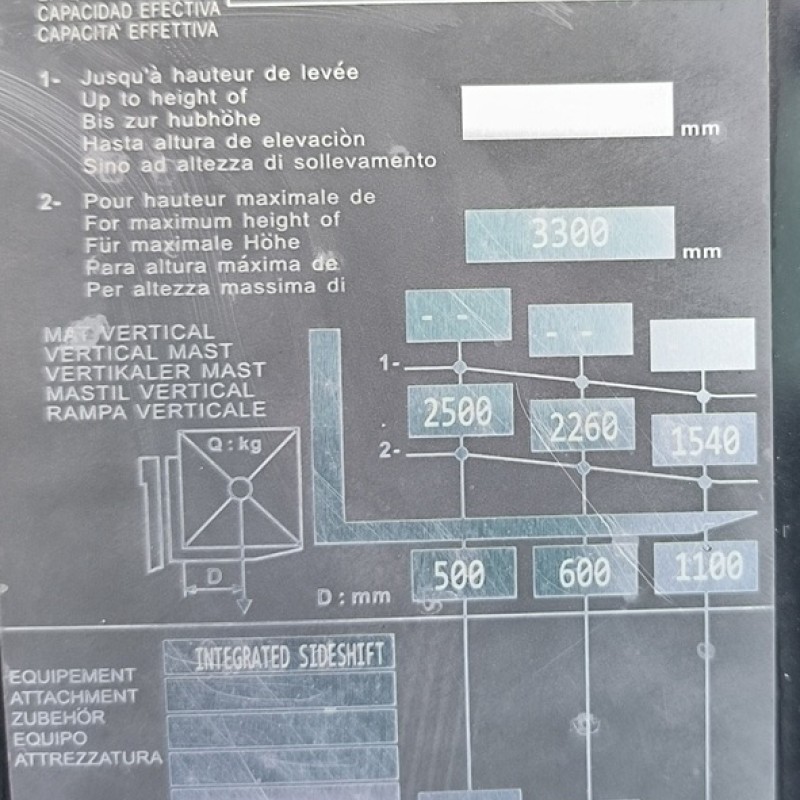 CAPACIDAD EFECTIVA
CAPACITA' EFFETTIVA
1- Jusqu'à hauteur de levée
Up to height of
Bis zur hubhöhe
Hasta altura de elevaciòn
Sino ad altezza di sollevamento
mm
2- Pour hauteur maximale de
For maximum height of
Für maximale Höhe
Para altura máxima de
Per altezza massima di
3300 mm
MAT VERTICAL
VERTICAL MAST
VERTIKALER MAST
MASTIL VERTICAL
RAMPA VERTICALE
- - - -
1-
2500 2260 1540
2-
Q : kg
D
D : mm
500 600 1100
EQUIPEMENT
ATTACHMENT
ZUBEHÖR
EQUIPO
ATTREZZATURA
INTEGRATED SIDESHIFT